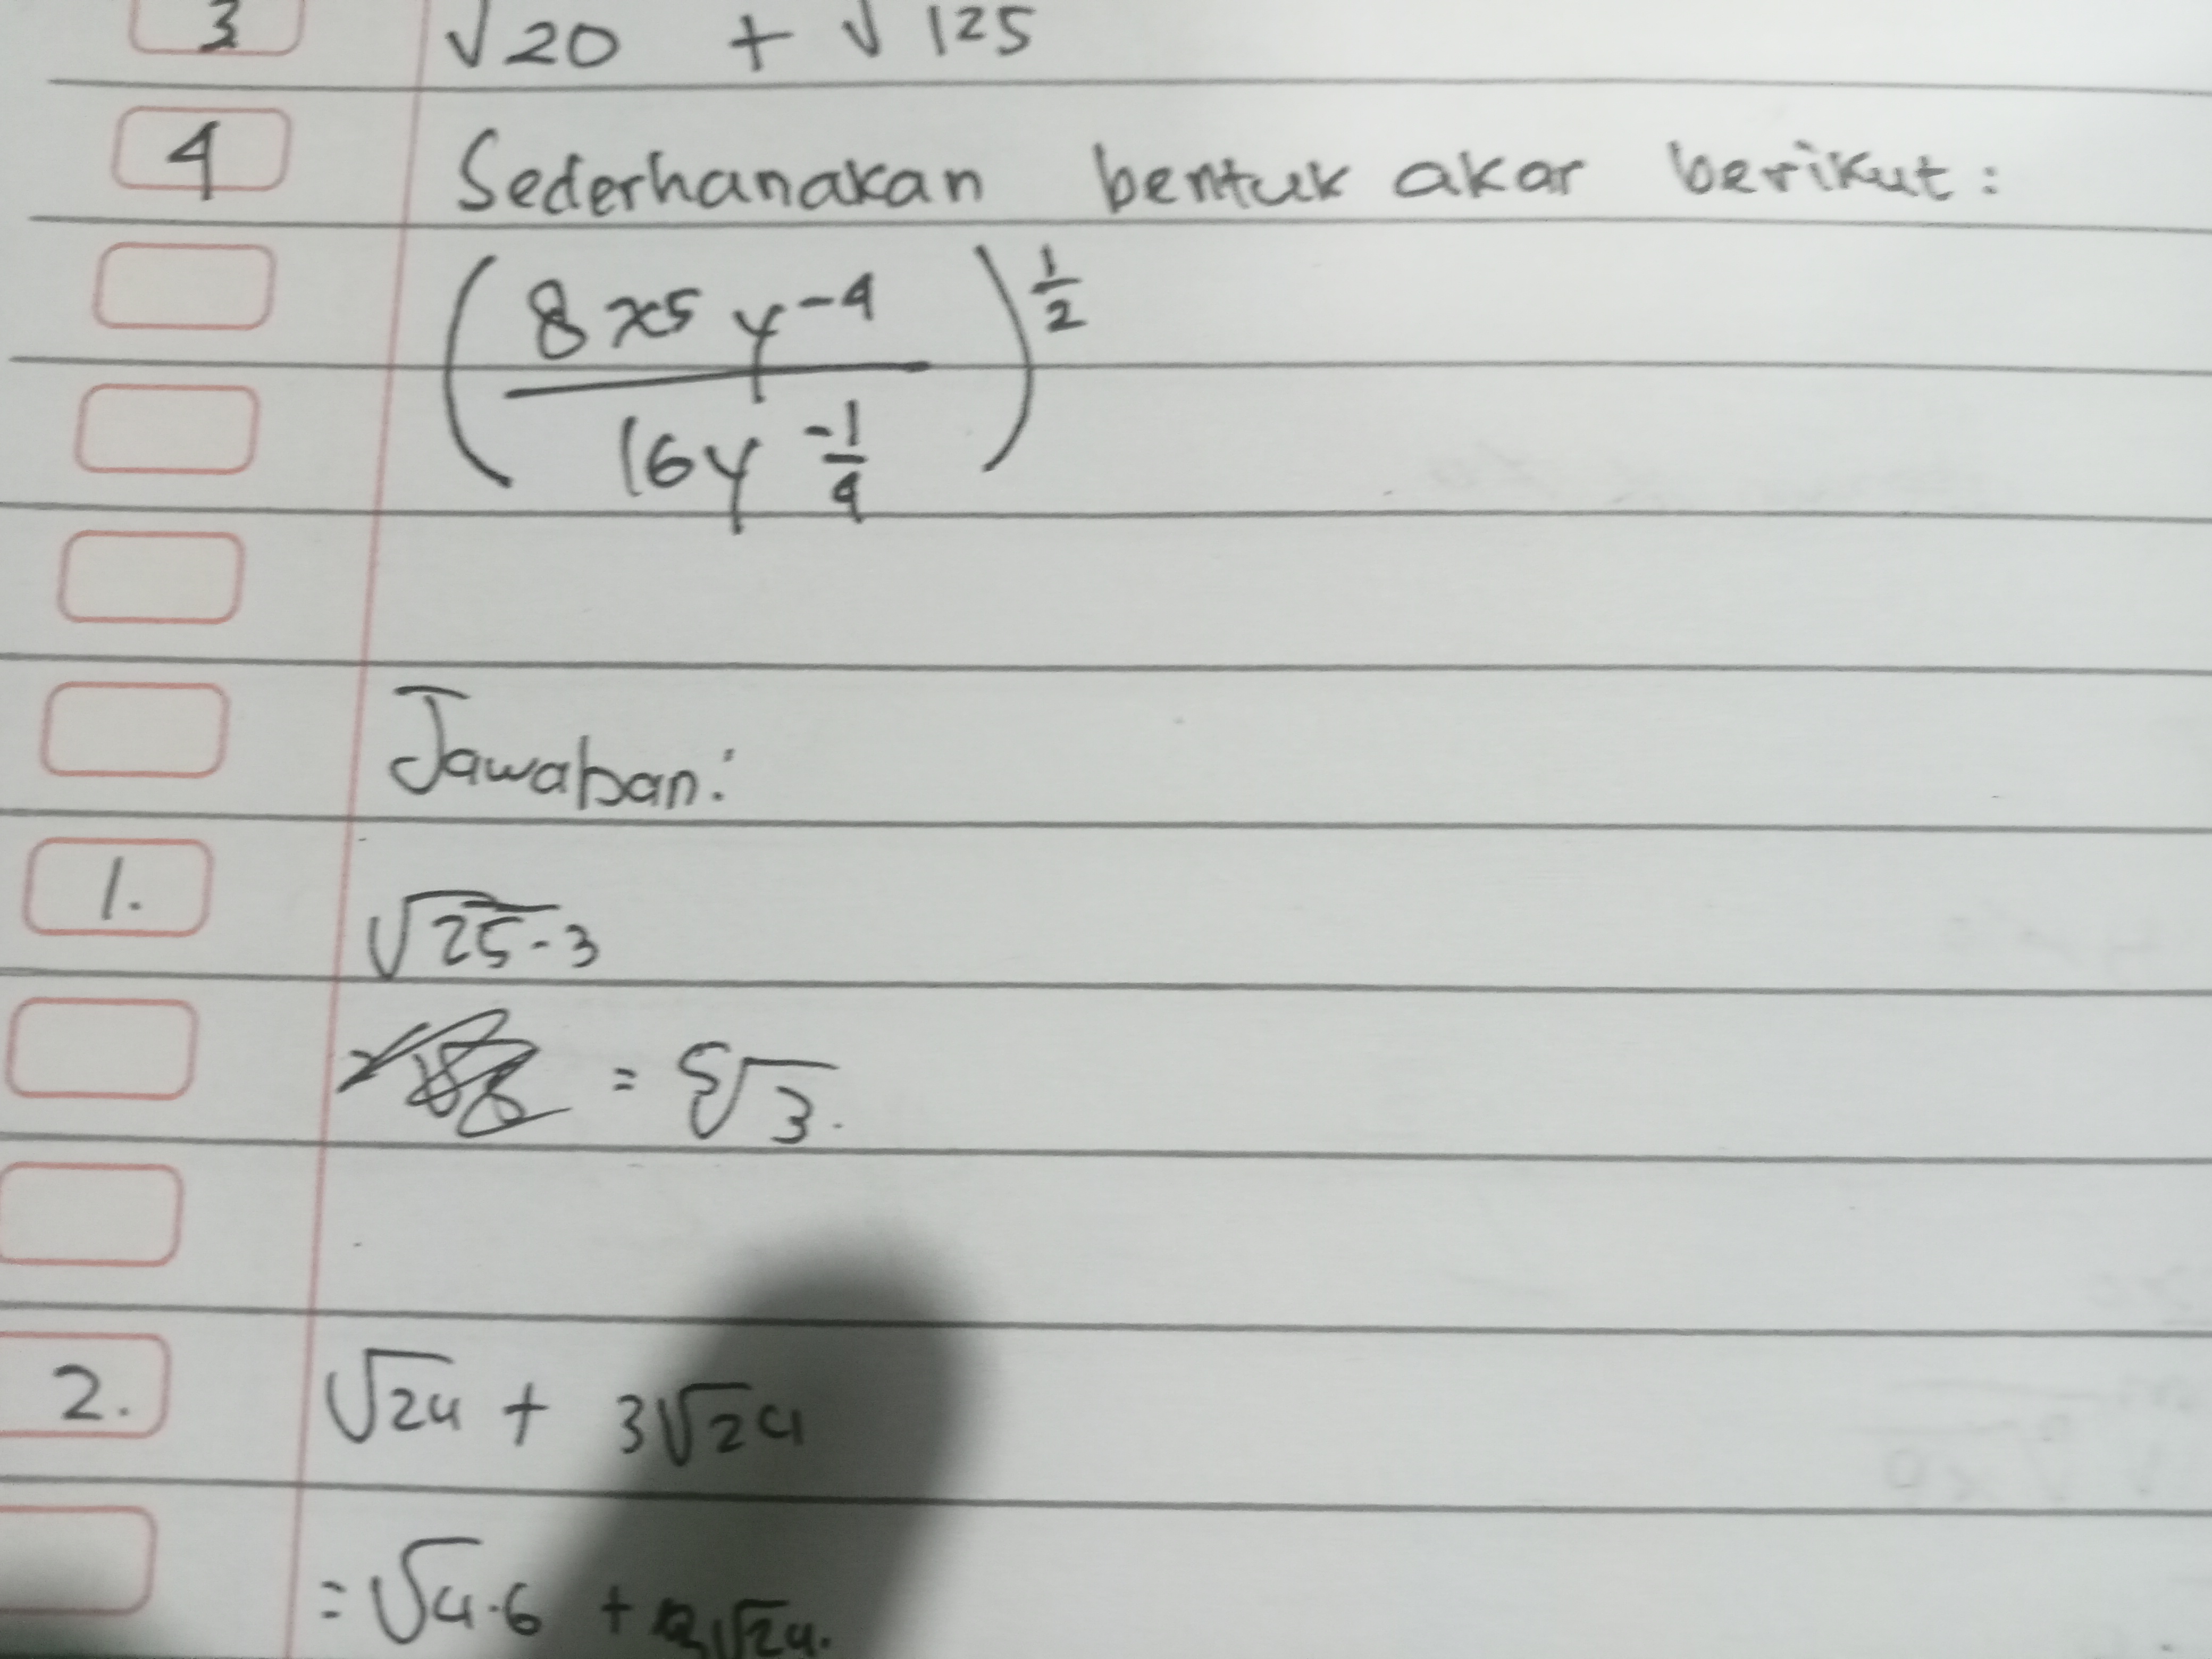 3 √20 + √125
4 Sederhanakan bentuk akar berikut:
(8x5 y-4 / 16y -1/4) 1/2
Jawaban:
1. √25.3
= 5√3.
2. √24 + 3√24
= √4.6 + 3√24.